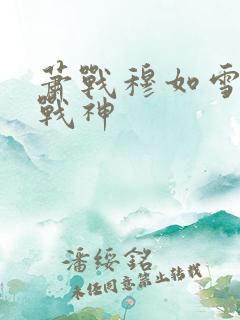 萧戰穆如雪
戰神
潘绥銘
未经同意禁止转载